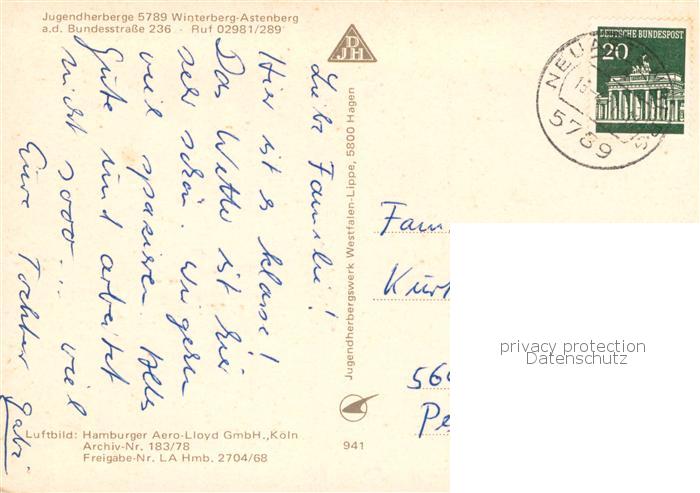 Jugendherberge 5789 Winterberg-Astenberg
a.d. Bundesstraße 236 · Ruf 02981/289
DJH
DEUTSCHE BUNDESPOST
20
NEUA
5789
Liebe Familie!
Hier ist es klasse!
Das Wetter ist hier
sehr schön. Wir gehen
viel spazieren. Alles
Gute und arbeitet
nicht sooo... viel
Eure Tochter Gabi
Jugendherbergswerk Westfalen-Lippe, 5800 Hagen
Fam
Kurt
56
Pe
privacy protection
Datenschutz
Luftbild: Hamburger Aero-Lloyd GmbH., Köln
Archiv-Nr. 183/78
Freigabe-Nr. LA Hmb. 2704/68
941